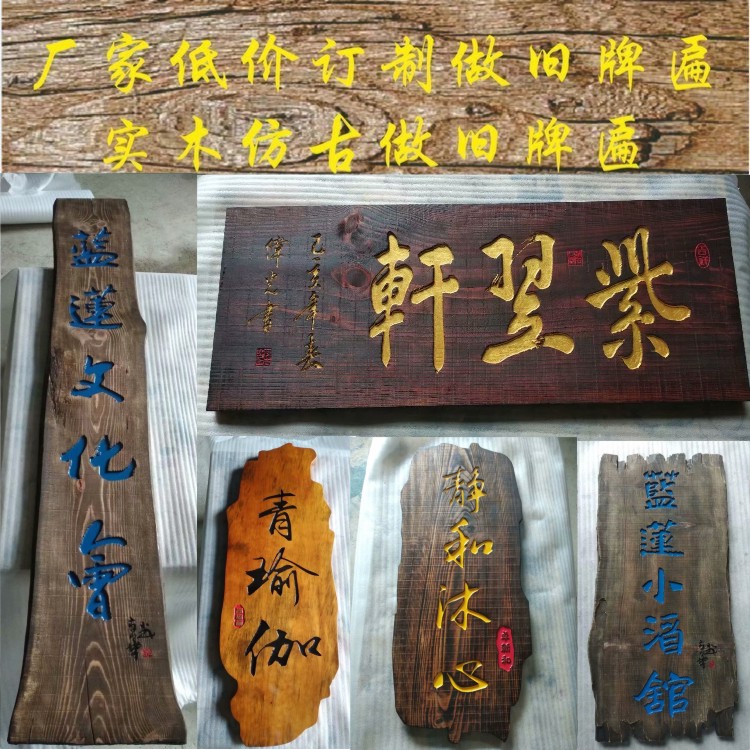 厂家低价订制做旧牌匾
实木仿古做旧牌匾
蓝蓮文化會
紫翌軒
己亥年春
青瑜伽
静和沐心
藍蓮小酒館